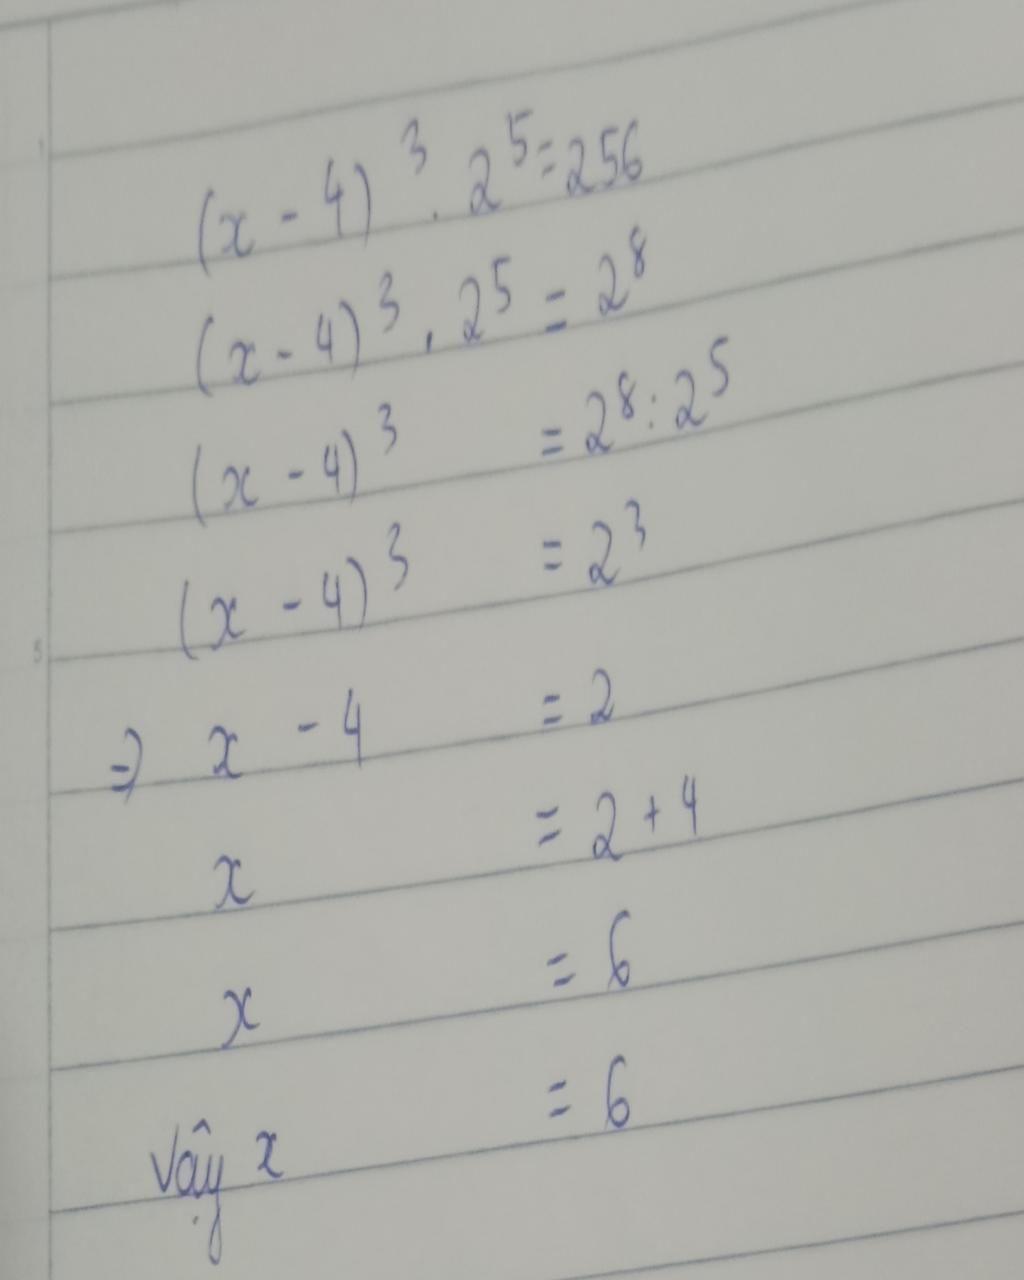 (x - 4)³ . 2⁵ = 256
(x - 4)³ . 2⁵ = 2⁸
(x - 4)³ = 2⁸ : 2⁵
(x - 4)³ = 2³
=> x - 4 = 2
x = 2 + 4
x = 6
Vậy x = 6